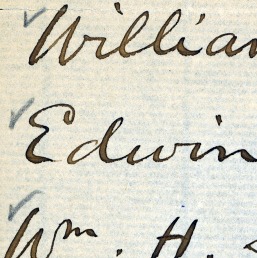 Willia
Edwin
Wm. H.